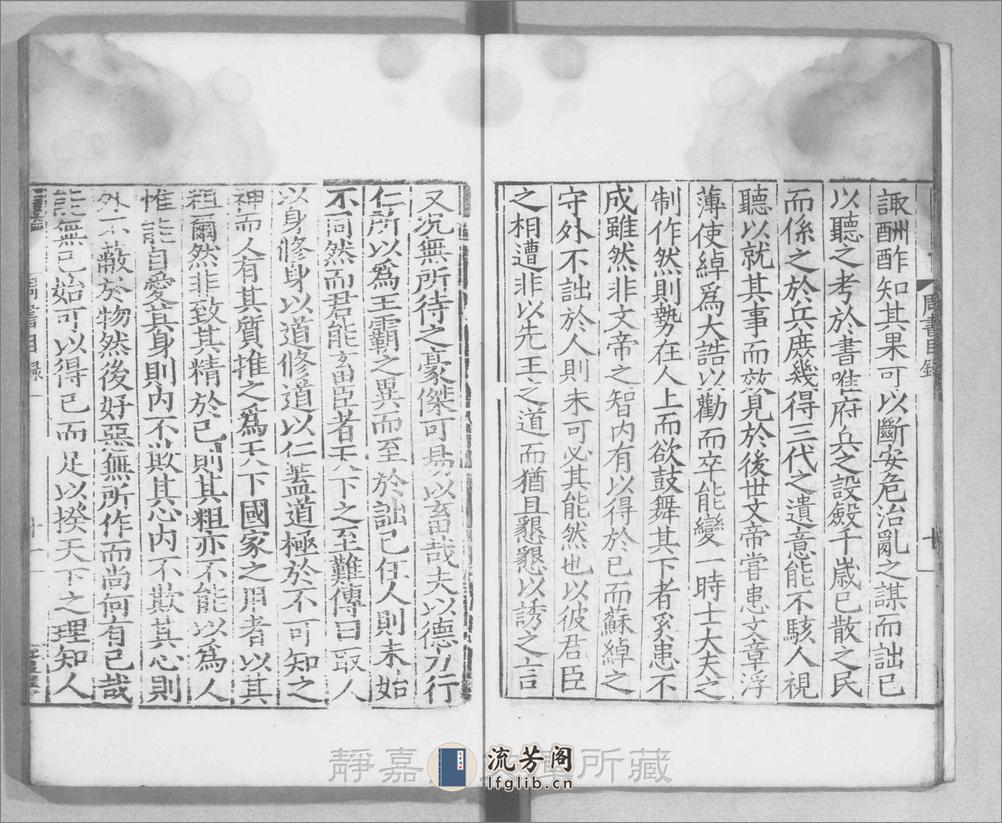 周書目錄
諏酬酢知其果可以斷安危治亂之謀而詘己
以聽之考於書唯府兵之設斂千歲已散之民
而係之於兵庶幾得三代之遺意能不駭人視
聽以就其事而效見於後世文帝嘗患文章浮
薄使綽爲大誥以勸而卒能變一時士大夫之
制作然則勢在人上而欲鼓舞其下者奚患不
成雖然非文帝之智內有以得於己而蘇綽之
守外不詘於人則未可必其能然也以彼君臣
之相遭非以先王之道而猶且懇懇以誘之言
又况無所待之豪傑可易以畜哉夫以德力行
仁所以爲王霸之異而至於詘己任人則未始
不同然而君能畜臣者天下之至難傳曰取人
以身修身以道修道以仁蓋道極於不可知之
神而人有其質推之爲天下國家之用者以其
粗爾然非致其精於己則其粗亦不能以爲人
惟能自愛其身則內不欺其心內不欺其心則
外不蔽於物然後好惡無所作而尚何有己哉
能無己始可以得己而足以揆天下之理知人
周書目錄
靜嘉 所藏
流芳阁
lfglib.cn